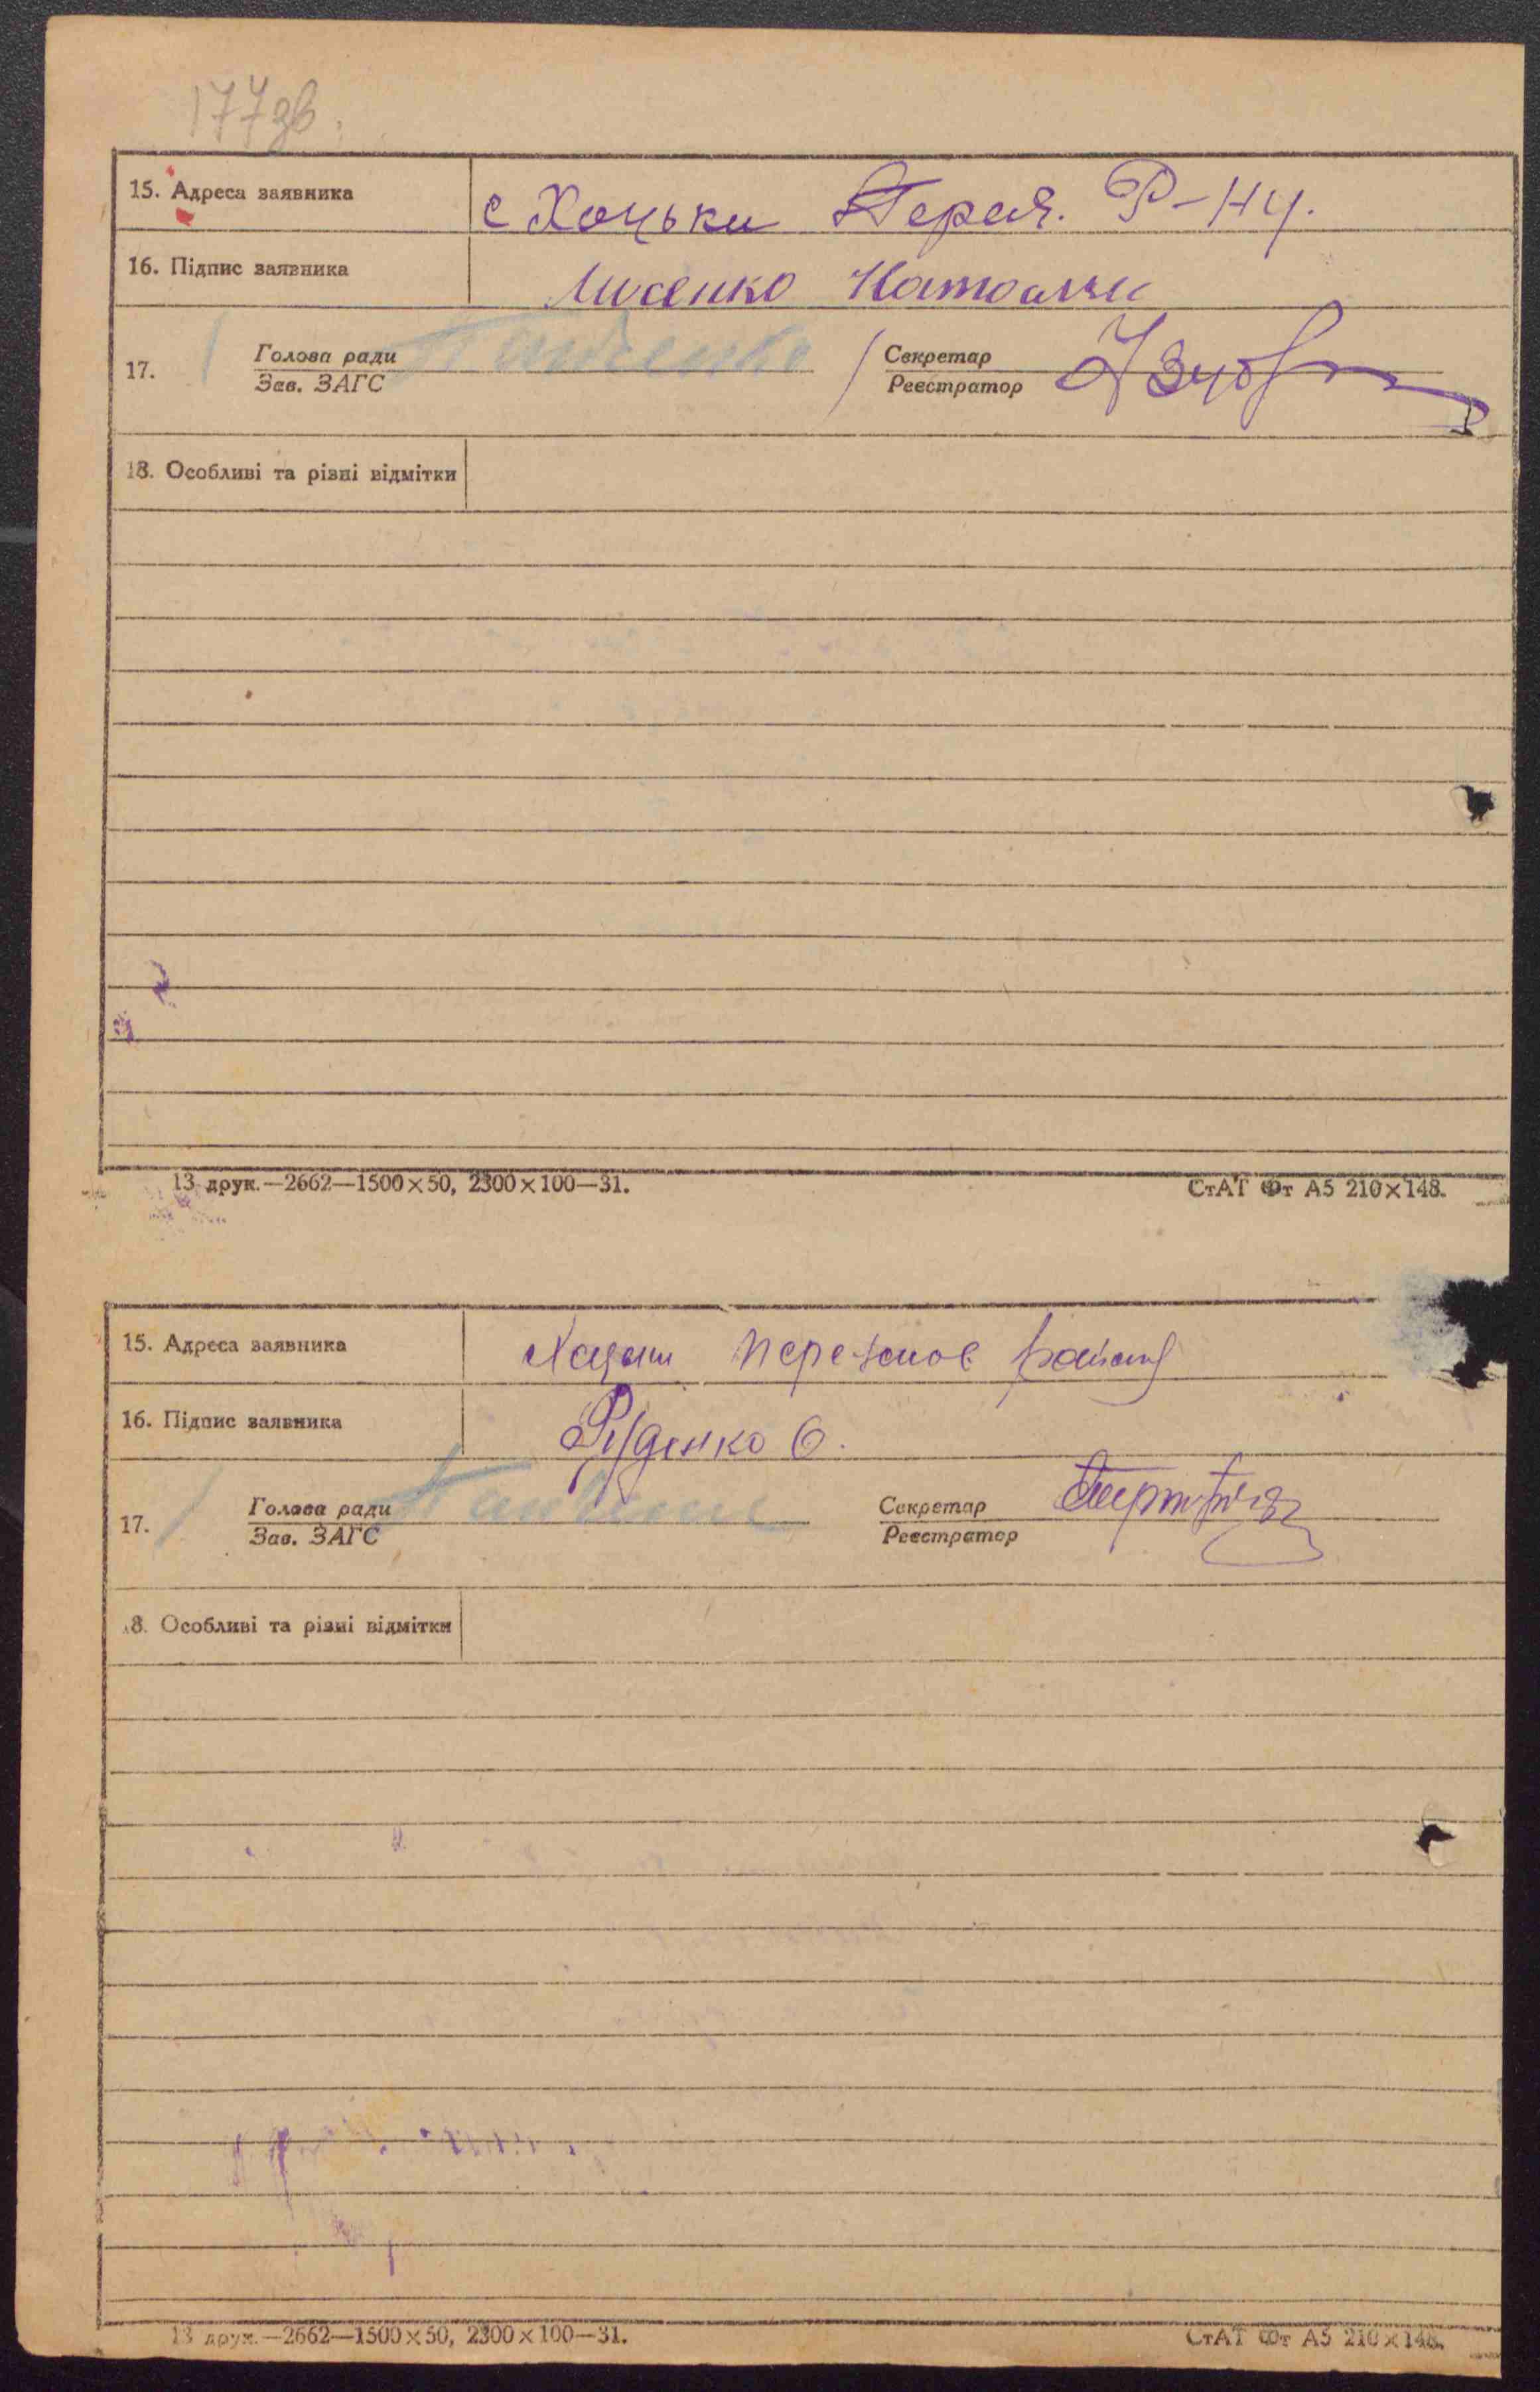 177 зв.
15. Адреса заявника с Хоцьки Перея. Р-Ну.
16. Підпис заявника Лисенко
17. Голова ради Панченко Секретар
Зав. ЗАГС Реєстратор
18. Особливі та різні відмітки
13 друк.—2662—1500×50, 2300×100—31. СтАТ Фт А5 210×148.
15. Адреса заявника району
16. Підпис заявника Руденко О.
17. Голова ради Секретар
Зав. ЗАГС Реєстратор
8. Особливі та різні відмітки
13 друк.—2662—1500×50, 2300×100—31. СтАТ Фт А5 210×148.